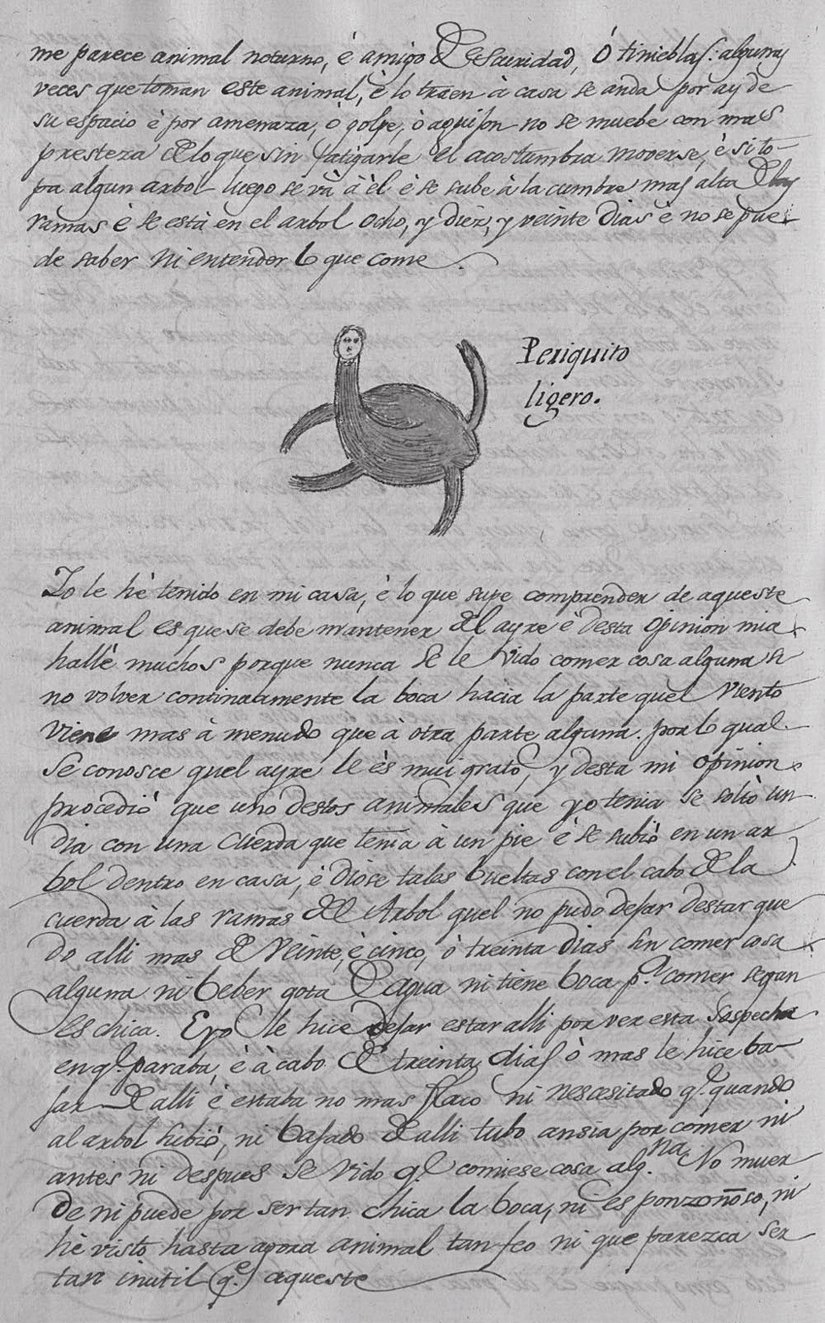 me parece animal noturno, è amigo de escuridad, ó tinieblas: algunas
veces que toman este animal, è lo traen à casa se anda por ay de
su espacio è por amenaza, ò golpe, ò aquijon no se muebe con mas
presteza de lo que sin fatigarle el acostumbra moverse, è si to-
pa algun arbol luego se và à èl è se sube à la cumbre mas alta de las
ramas è se està en el arbol ocho, y diez, y veinte dias è no se pue-
de saber ni entender lo que come.
Periquito
ligero.
Io le hè tenido en mi casa, è lo que supe comprender de aqueste
animal es que se debe mantener del ayre è desta opinion mia
hallè muchos porque nunca se le vido comer cosa alguna si
no volver continuamente la boca hacia la parte quel viento
viene mas à menudo que à otra parte alguna. por lo qual
se conosce quel ayre le ès mui grato, y desta mi opinion
procediò que uno destos animales que yo tenia se soltò un
dia con una cuerda que tenia à un pie è se subiò en un ar
bol dentro en casa, è diòse tales bueltas con el cabo de la
cuerda à las ramas del Arbol quel no pudo dejar destar que
do alli mas de veinte, è cinco, ò treinta dias sin comer cosa
alguna ni beber gota de agua ni tiene boca pa. comer segun
es chica. E yo le hice dejar estar alli por ver esta sospecha
en q. paraba, è à cabo de treinta dias ò mas le hice ba-
jar de alli è estaba no mas flaco ni nescesitado q. quando
al arbol subiò, ni bajado de alli tubo ansia por comer ni
antes ni despues se vido q. comiese cosa alg.na No muer
de ni puede por ser tan chica la boca, ni es ponzoñoso, ni
hè visto hasta agora animal tan feo ni que parezca ser
tan inutil q.e aqueste